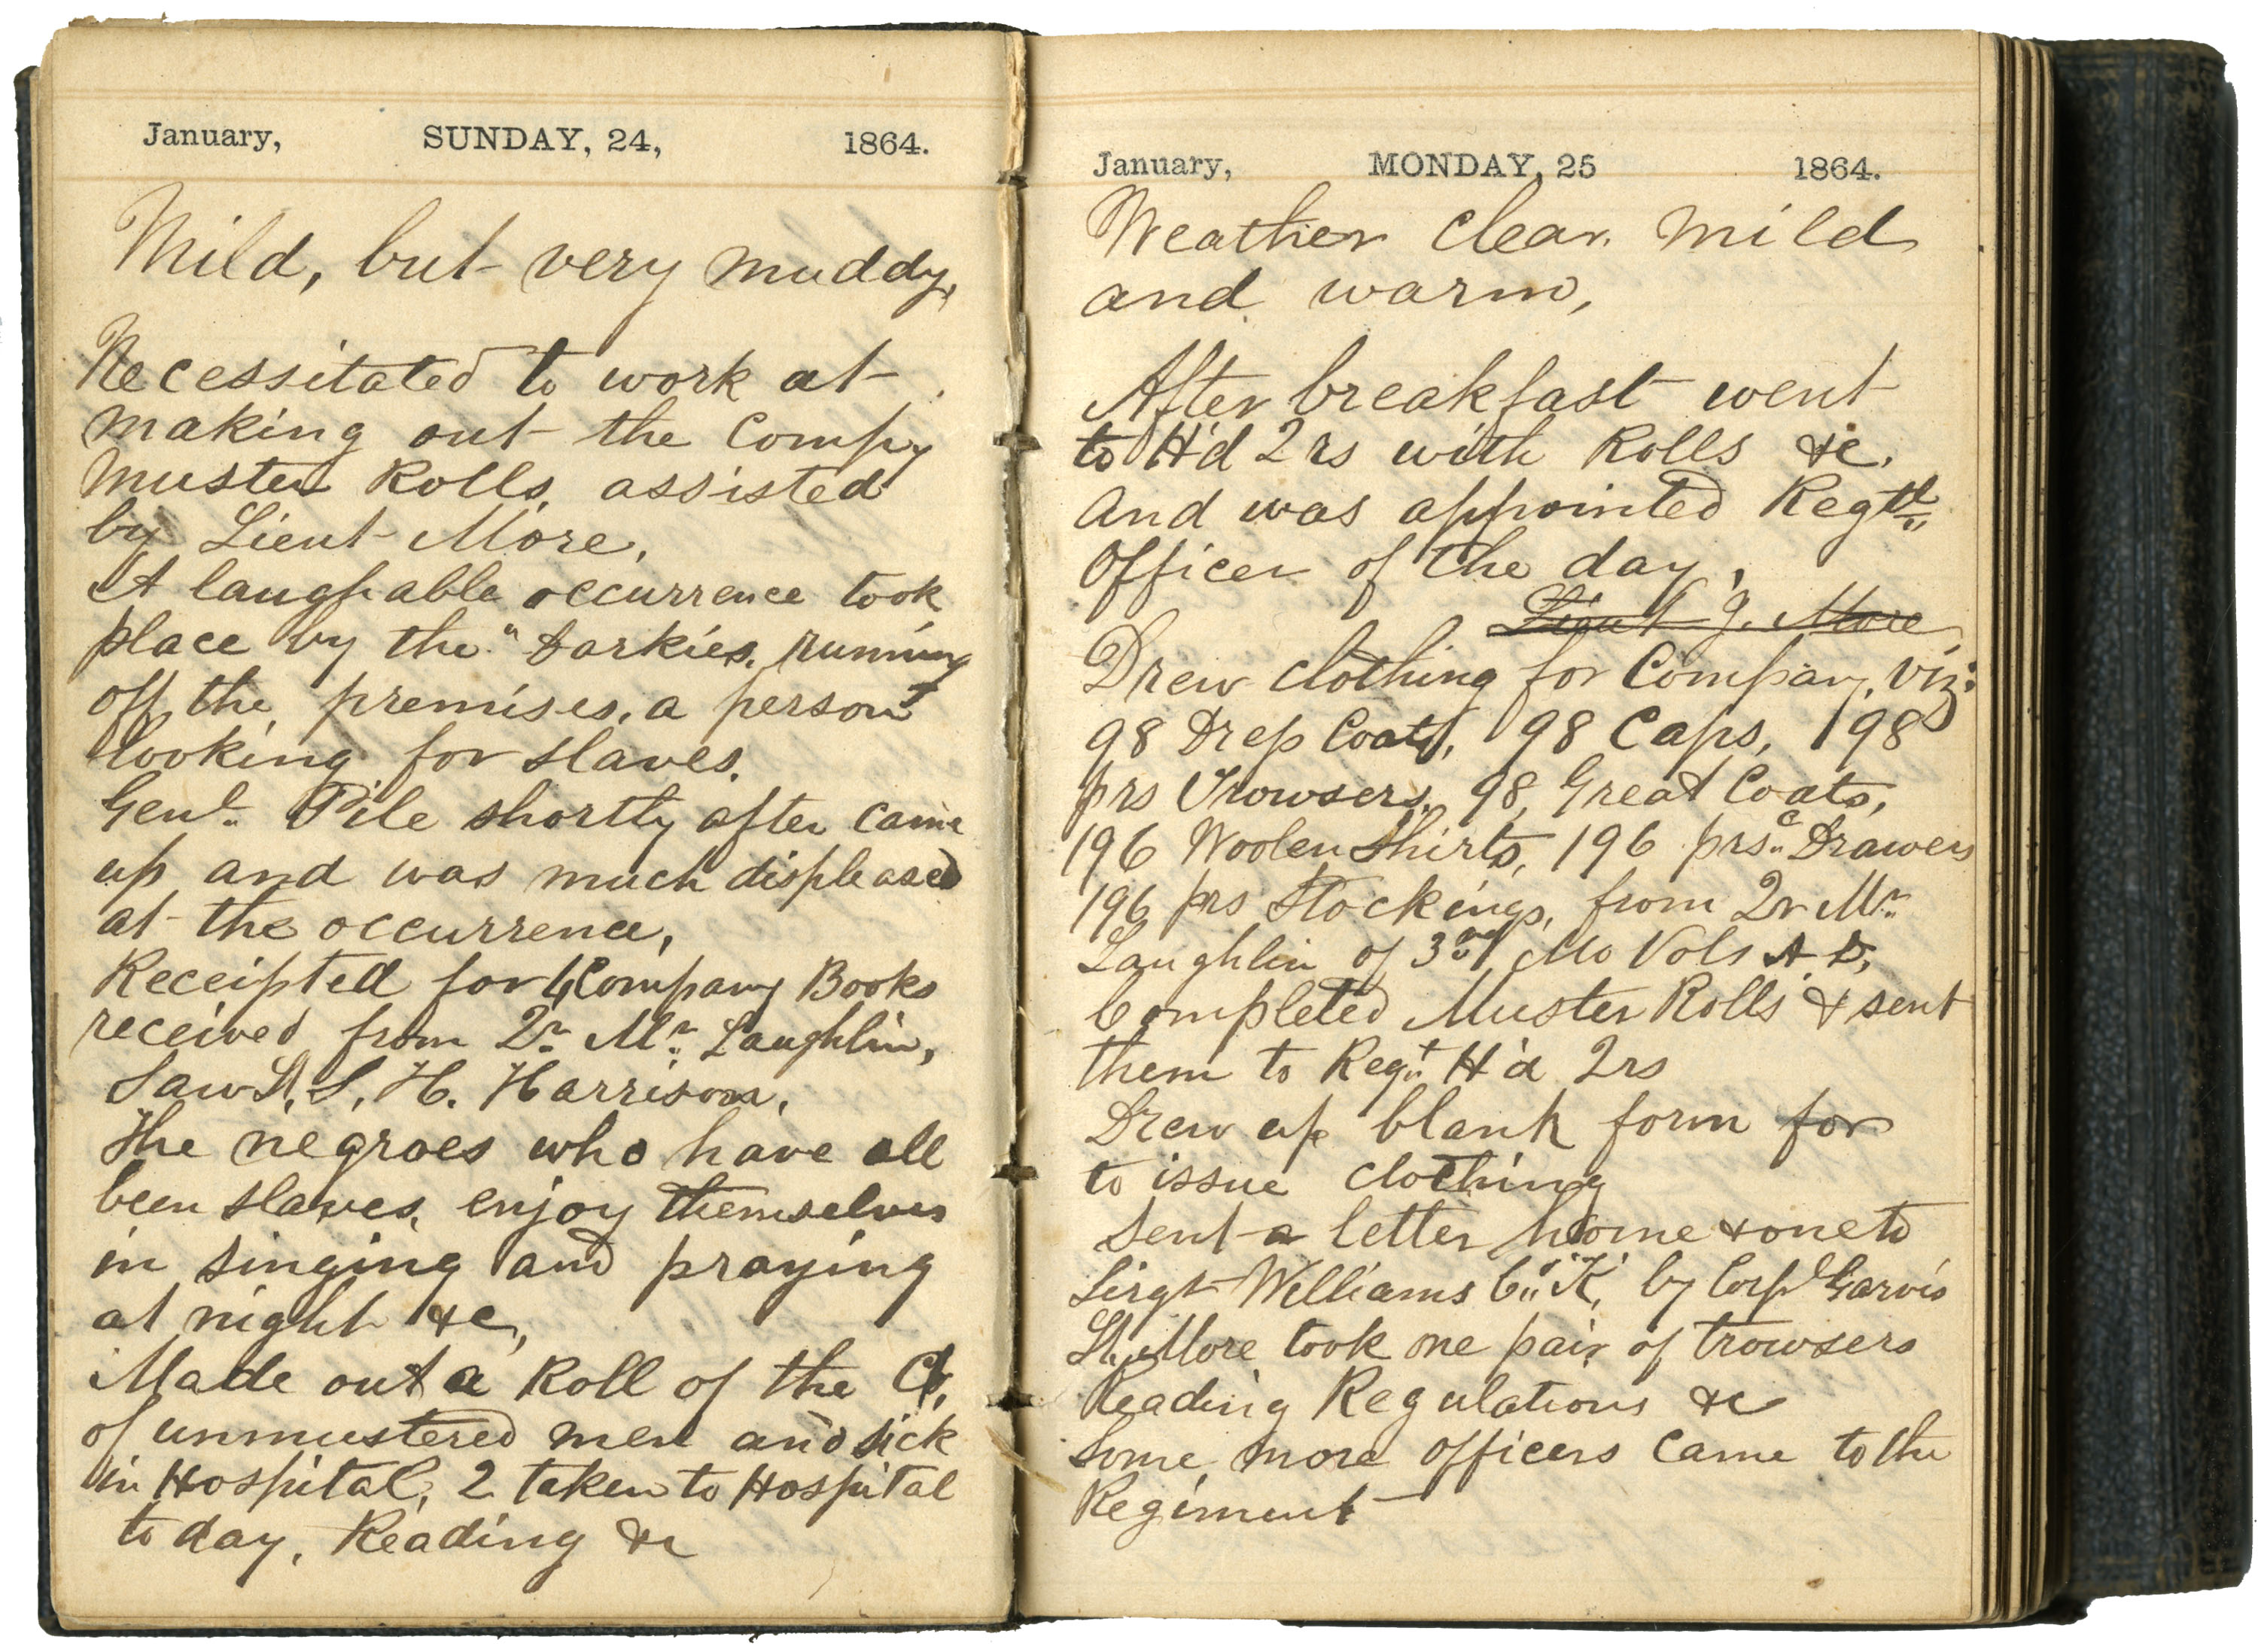 January, SUNDAY, 24, 1864.
Mild, but very muddy,
Necessitated to work at
making out the Compy
Muster Rolls, assisted
by Lieut More,
A laughable occurrence took
place by the "darkies, running
off the premises, a person
looking for slaves.
Genl. Pile shortly after came
up and was much displeased
at the occurrence,
Receipted for 4 Company Books
received from Qr. Mr. Laughlin,
Saw Lt. S. H. Harrison,
The negroes who have all
been slaves, enjoy themselves
in singing and praying
at night &c,
Made out a Roll of the Co,
of unmustered men and sick
in Hospital, 2 taken to Hospital
to day, Reading &c
January, MONDAY, 25 1864.
Weather clear, mild
and warm,
After breakfast went
to H'd Qrs with Rolls &c,
and was appointed Regtl
Officer of the day,
Lieut J. More
Drew clothing for Company, viz:
98 Dress Coats, 98 Caps, 98
prs Trowsers, 98, Great Coats,
196 Woolen Shirts, 196 prs Drawers
196 prs Stockings, from Qr Mr
Laughlin of 3rd Mo Vols A. D,
Completed Muster Rolls & sent
them to Regt H'd Qrs
Drew up blank form for
to issue clothing
Sent a letter home & one to
Sergt Williams Co "K", by Corpl Garvis
Lt. More took one pair of trowsers
Reading Regulations &c
Some more officers came to the
Regiment